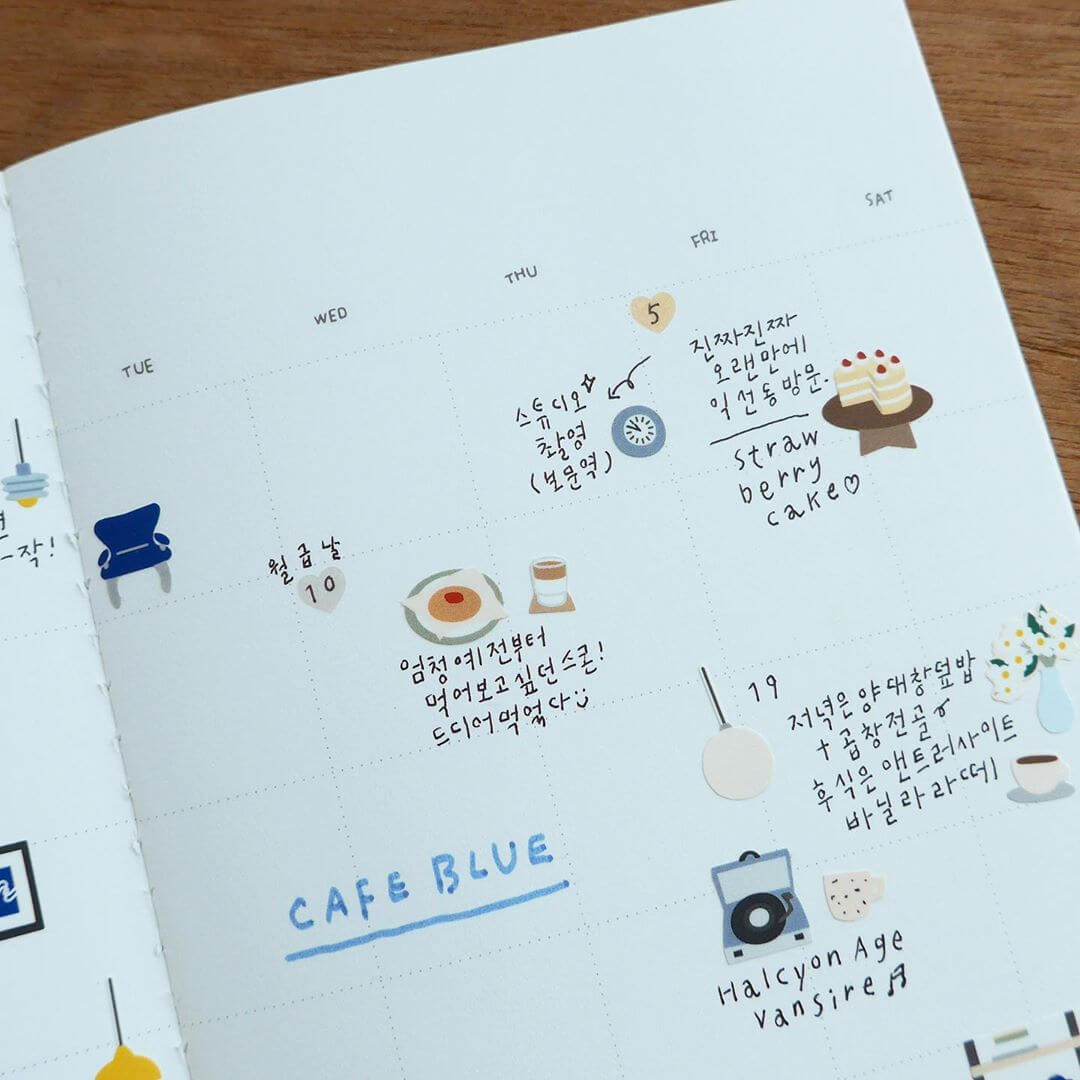 TUE
WED
THU
FRI
SAT
5
스튜디오
촬영
(보문역)
진짜진짜
오랜만에
익선동방문.
straw
berry
cake♡
-작!
월급날
10
엄청예전부터
먹어보고싶던스콘!
드디어먹었다
19
저녁은양대창덮밥
+곱창전골
후식은앤트러사이트
바닐라라떼
CAFE BLUE
Halcyon Age
vansire